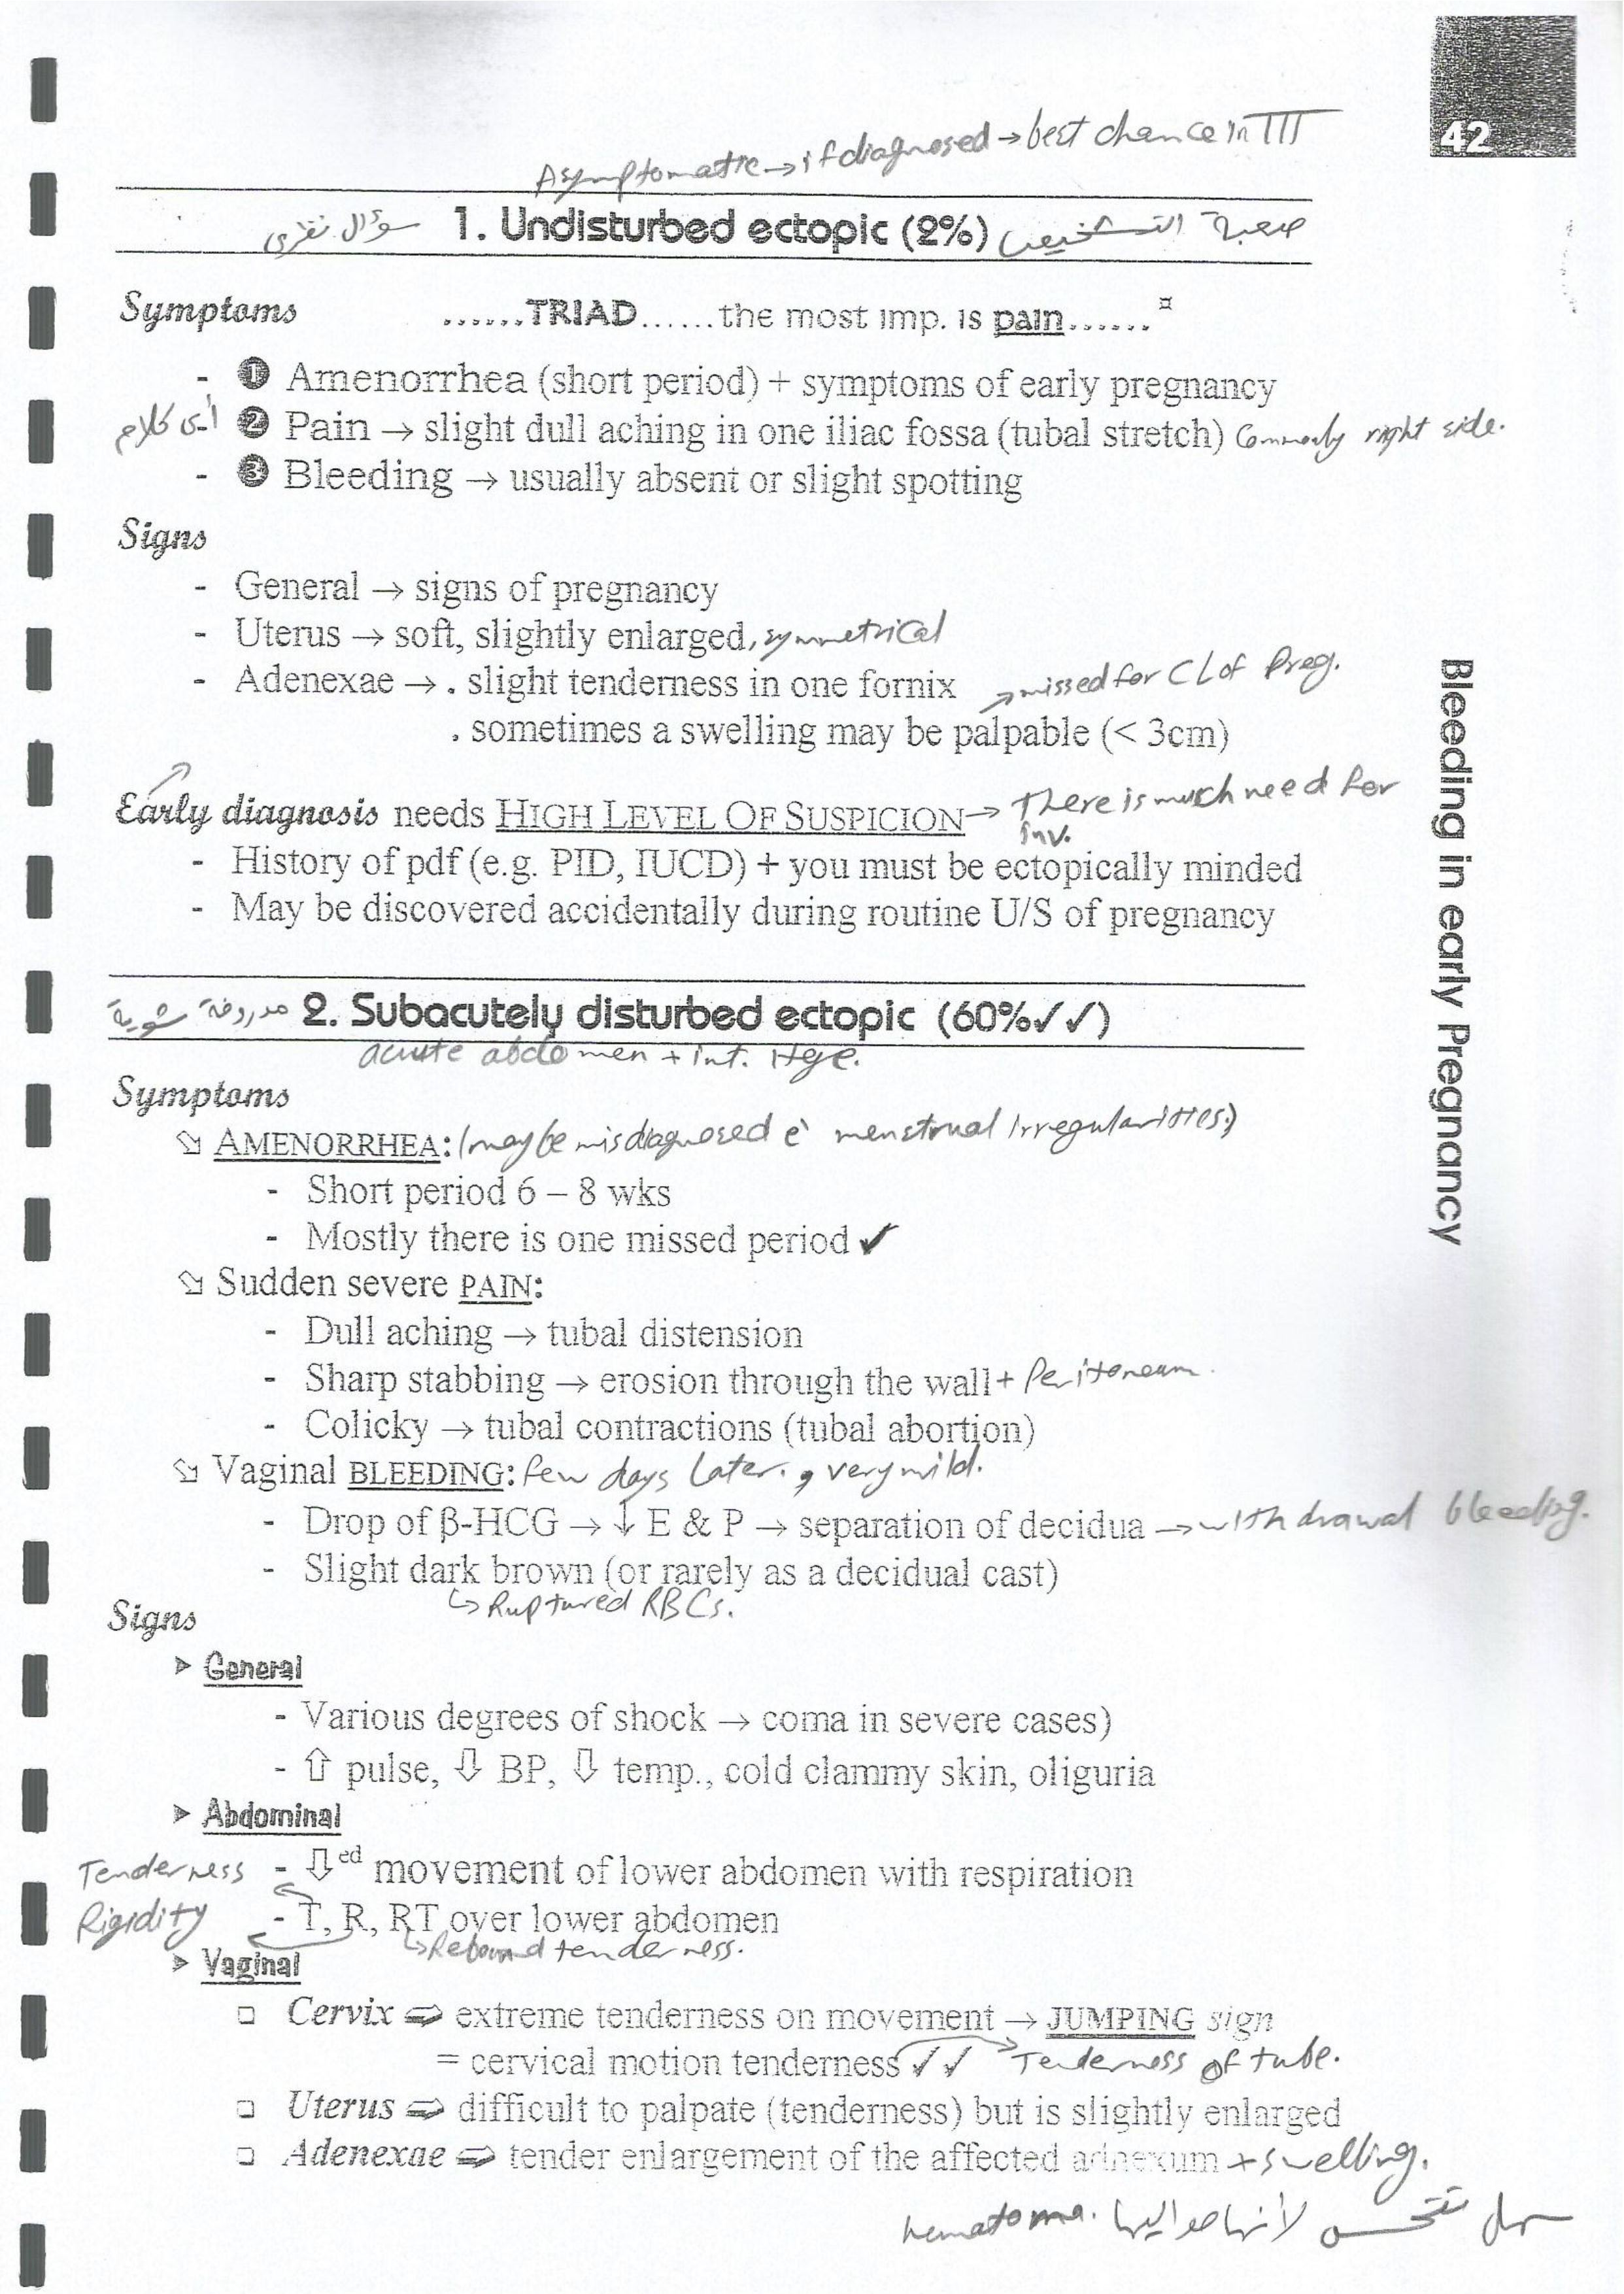 42
Asymptomatic → if diagnosed → best chance in TTT
سؤال نظرى 1. Undisturbed ectopic (2%) صعبة التشخيص
Symptoms ......TRIAD......the most imp. is pain......¤
- ❶ Amenorrhea (short period) + symptoms of early pregnancy
أى كلام - ❷ Pain → slight dull aching in one iliac fossa (tubal stretch) Commonly right side.
- ❸ Bleeding → usually absent or slight spotting
Signs
- General → signs of pregnancy
- Uterus → soft, slightly enlarged, symmetrical
- Adenexae → . slight tenderness in one fornix → missed for CL of Preg.
. sometimes a swelling may be palpable (< 3cm)
Early diagnosis needs HIGH LEVEL OF SUSPICION → There is much need for
inv.
- History of pdf (e.g. PID, IUCD) + you must be ectopically minded
- May be discovered accidentally during routine U/S of pregnancy
مدروخة شوية 2. Subacutely disturbed ectopic (60%✓✓)
acute abdomen + int. Hge.
Symptoms
⇘ AMENORRHEA: (may be misdiagnosed c̄ menstrual irregularities.)
- Short period 6 – 8 wks
- Mostly there is one missed period ✔
⇘ Sudden severe PAIN:
- Dull aching → tubal distension
- Sharp stabbing → erosion through the wall + Peritoneum.
- Colicky → tubal contractions (tubal abortion)
⇘ Vaginal BLEEDING: few days later. , very mild.
- Drop of β-HCG → ↓ E & P → separation of decidua → withdrawal bleeding.
- Slight dark brown (or rarely as a decidual cast)
↳ Ruptured RBCs.
Signs
➤ General
- Various degrees of shock → coma in severe cases)
- ⇧ pulse, ⇩ BP, ⇩ temp., cold clammy skin, oliguria
➤ Abdominal
Tenderness - ⇩ed movement of lower abdomen with respiration
Rigidity - T, R, RT over lower abdomen
↳ Rebound tenderness.
➤ Vaginal
❑ Cervix ⇨ extreme tenderness on movement → JUMPING sign
= cervical motion tenderness ✓✓ → Tenderness of tube.
❑ Uterus ⇨ difficult to palpate (tenderness) but is slightly enlarged
❑ Adenexae ⇨ tender enlargement of the affected adnexum + swelling.
سهل تتحس لأنها حواليها hematoma.
Bleeding in early Pregnancy